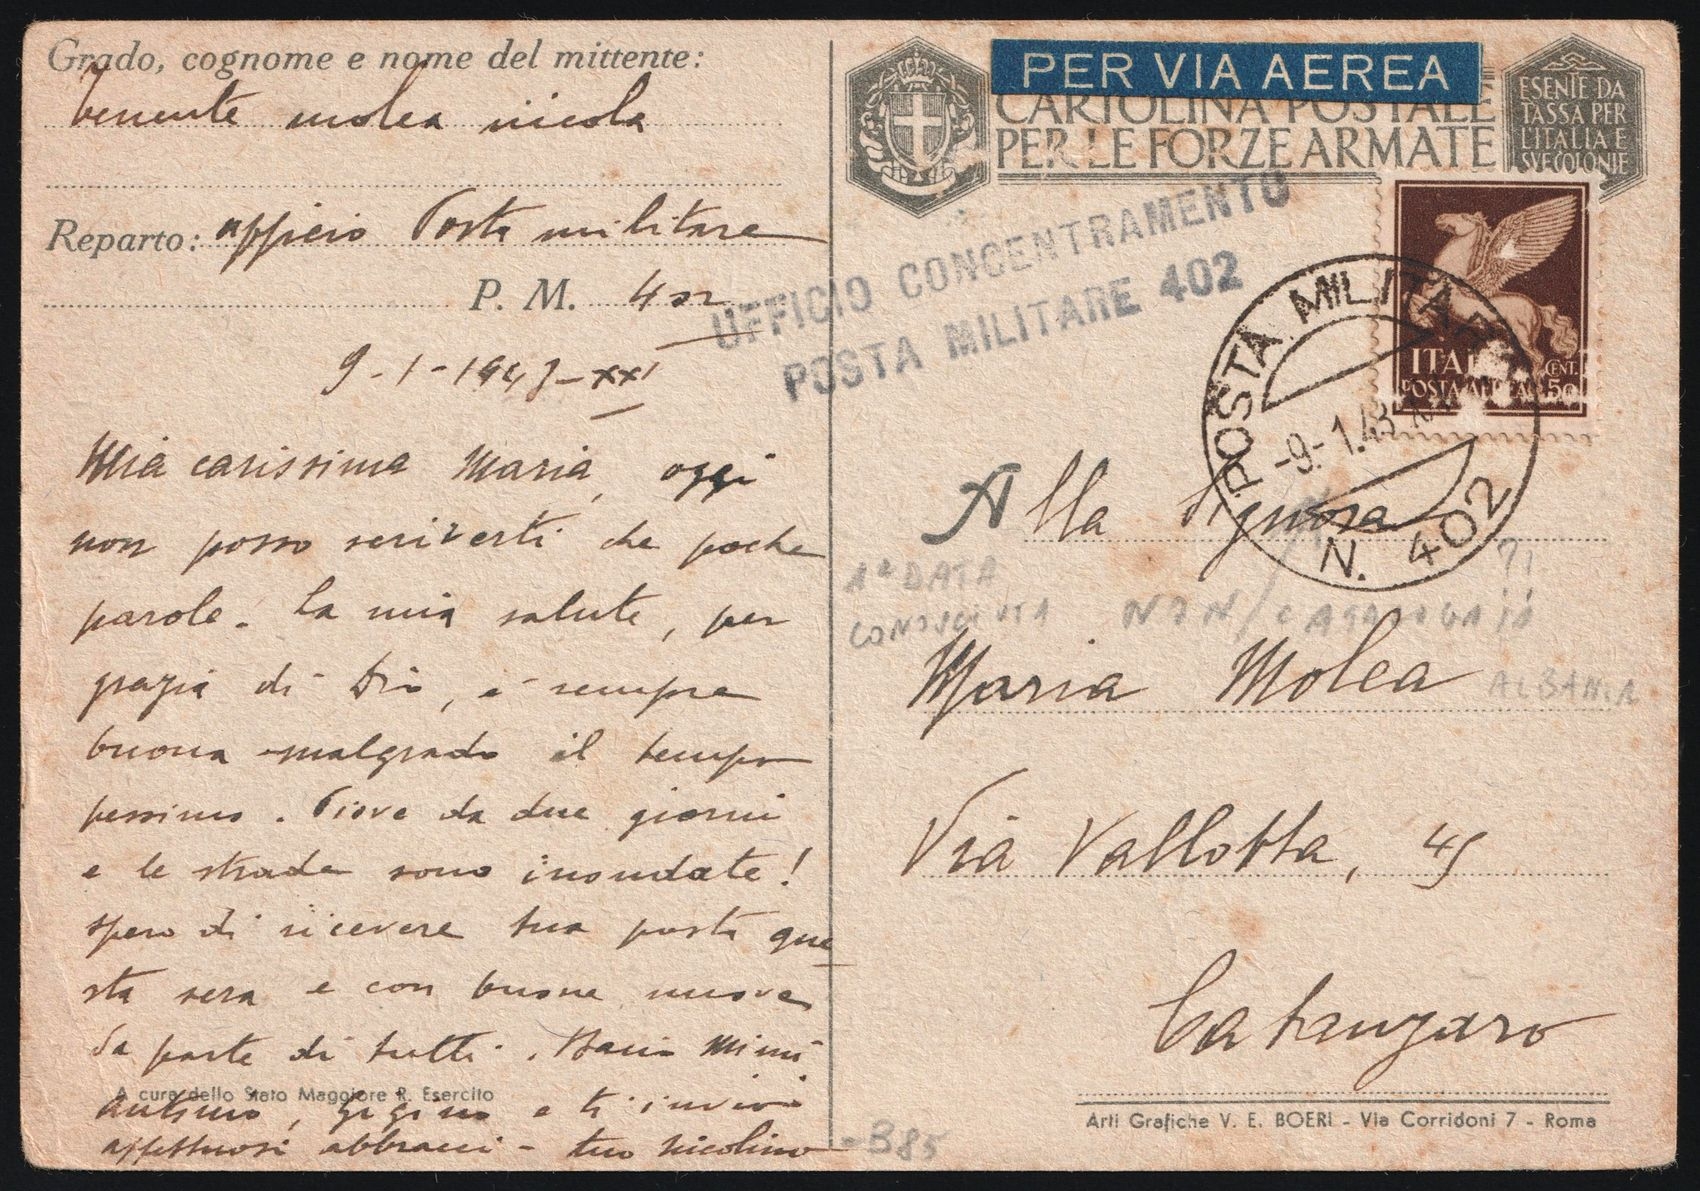 Grado, cognome e nome del mittente:
Tenente Molea Nicola
Reparto: ufficio Posta militare
P. M. 402
9-1-1943-XXI
Mia carissima Maria, oggi
non posso scriverti che poche
parole. La mia salute, per
grazia di Dio, è sempre
buona malgrado il tempo
pessimo. Piove da due giorni
e le strade sono inondate!
Spero di ricevere tua posta que
sta sera e con buone nuove
da parte di tutti. Bacio Mimì
A cura dello Stato Maggiore R. Esercito
Gigino e ti invio
affettuosi abbracci - tuo Nicolino
PER VIA AEREA
CARTOLINA POSTALE
PER LE FORZE ARMATE
ESENTE DA
TASSA PER
L'ITALIA E
SVE COLONIE
UFFICIO CONCENTRAMENTO
POSTA MILITARE 402
ITALIA
POSTA AEREA
CENT. 50
POSTA MILITARE
-9.-1.43
N. 402
Alla Signora
1ª DATA
CONOSCIUTA
NON CATALOGATA
?!
Maria Molea
ALBANIA
Via Vallotta, 45
Catanzaro
Arti Grafiche V. E. BOERI - Via Corridoni 7 - Roma
-B85